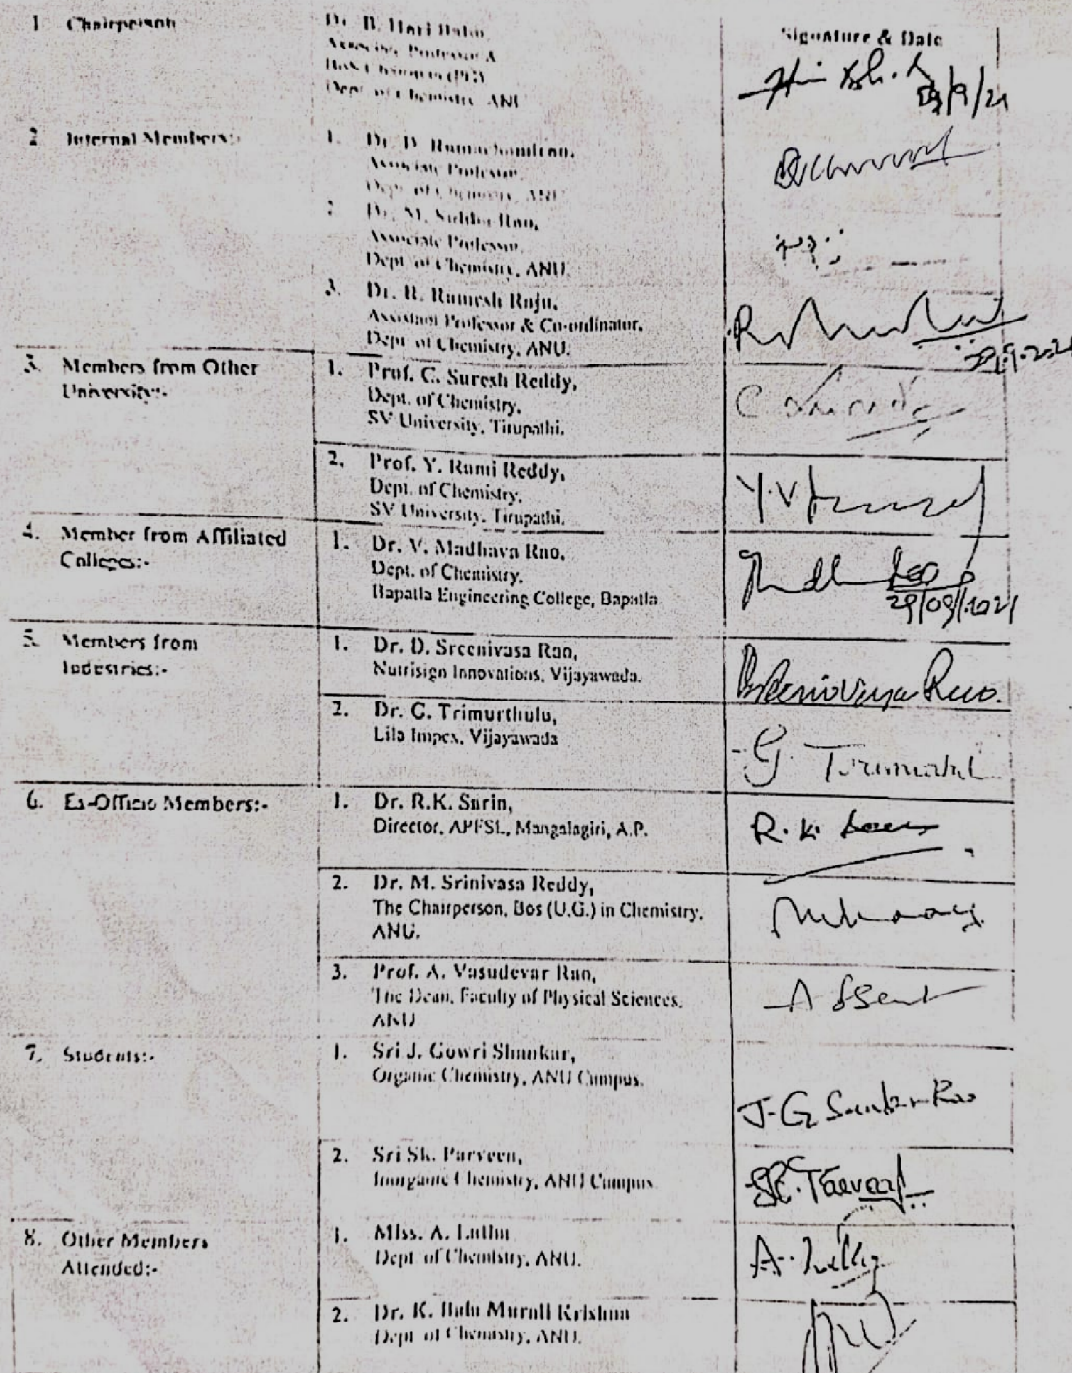 1 Chairperson
Dr. B. Hari Babu,
Associate Professor &
BoS Chairman (PG)
Dept. of Chemistry, ANU
Signature & Date
2 Internal Members:-
1. Dr. D. Ramachandran,
Associate Professor,
Dept. of Chemistry, ANU
2 Dr. M. Subba Rao,
Associate Professor,
Dept. of Chemistry, ANU.
3. Dr. R. Ramesh Raju,
Assistant Professor & Co-ordinator,
Dept. of Chemistry, ANU.
3. Members from Other
University:-
1. Prof. C. Suresh Reddy,
Dept. of Chemistry,
SV University, Tirupathi.
2. Prof. Y. Rami Reddy,
Dept. of Chemistry,
SV University, Tirupathi.
4. Member from Affiliated
Colleges:-
1. Dr. V. Madhava Rao,
Dept. of Chemistry,
Bapatla Engineering College, Bapatla
29/09/2021
5. Members from
Industries:-
1. Dr. D. Sreenivasa Rao,
Nutrisign Innovations, Vijayawada.
2. Dr. G. Trimurthulu,
Lila Impex, Vijayawada
6. Ex-Officio Members:-
1. Dr. R.K. Sarin,
Director, APFSL, Mangalagiri, A.P.
R. K.
2. Dr. M. Srinivasa Reddy,
The Chairperson, Bos (U.G.) in Chemistry,
ANU.
3. Prof. A. Vasudevar Rao,
The Dean, Faculty of Physical Sciences,
ANU
Absent
7. Students:-
1. Sri J. Gowri Shankar,
Organic Chemistry, ANU Campus.
2. Sri Sk. Parveen,
Inorganic Chemistry, ANU Campus
8. Other Members
Attended:-
1. Miss. A. Latha
Dept of Chemistry, ANU.
2. Dr. K. Bala Murali Krishna
Dept of Chemistry, ANU.